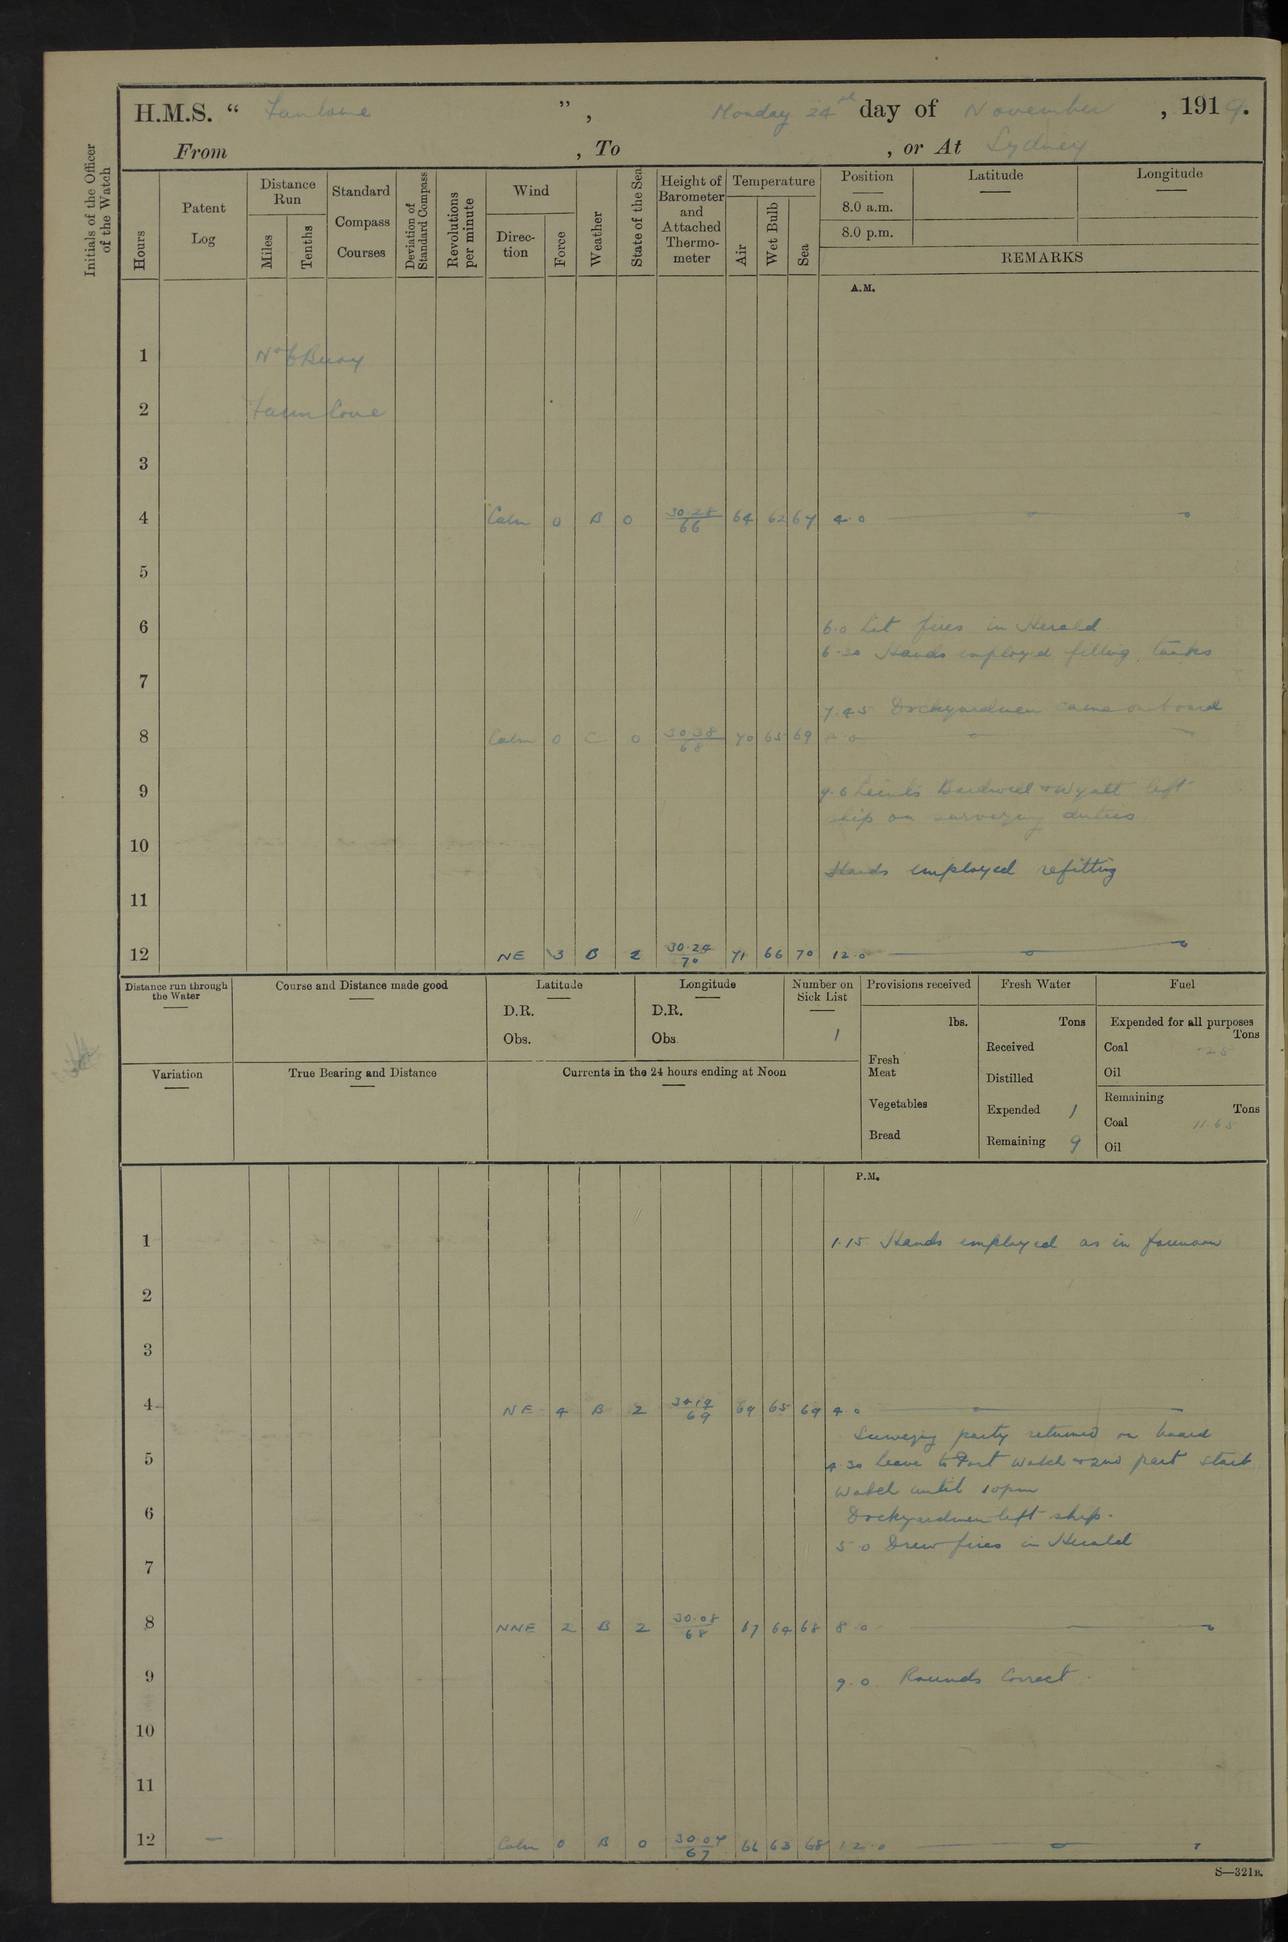 H.M.S. “ Fantome ”, Monday 24th day of November, 1919.
From , To , or At Sydney
Initials of the Officer of the Watch
Hours
Patent Log
Distance Run
Miles
Tenths
Standard Compass Courses
Deviation of Standard Compass
Revolutions per minute
Wind
Direc-tion
Force
Weather
State of the Sea
Height of Barometer and Attached Thermo-meter
Temperature
Air
Wet Bulb
Sea
Position
8.0 a.m.
8.0 p.m.
Latitude
Longitude
REMARKS
A.M.
1 No 6 Buoy
2 Farm Cove
3
4 Calm 0 B 0 30.28/66 64 62 67 4.0
5
6 6.0 Lit fires in Herald
6.30 Hands employed filling tanks
7
7.45 Dockyardmen came on board
8 Calm 0 C 0 30.38/68 70 65 69 8.0
9 9.0 Lieuts Bardwell & Wyatt left
ship on surveying duties
10
Hands employed refitting
11
12 NE 3 B 2 30.24/70 71 66 70 12.0
Distance run through the Water
Course and Distance made good
Latitude
D.R.
Obs.
Longitude
D.R.
Obs.
Number on Sick List
1
Provisions received
lbs.
Fresh Meat
Vegetables
Bread
Fresh Water
Tons
Received
Distilled
Expended 1
Remaining 9
Fuel
Expended for all purposes
Tons
Coal .25
Oil
Remaining
Tons
Coal 11.65
Oil
Variation
True Bearing and Distance
Currents in the 24 hours ending at Noon
P.M.
1 1.15 Hands employed as in forenoon
2
3
4 NE 4 B 2 30.19/69 69 65 69 4.0
Surveying party returned on board
5 4.30 Leave to Port Watch & 2nd part Starb
Watch until 10pm
6 Dockyardmen left ship.
5.0 Drew fires in Herald
7
8 NNE 2 B 2 30.08/68 67 64 68 8.0
9 9.0 Rounds Correct.
10
11
12 Calm 0 B 0 30.07/67 66 63 68 12.0
S—321B.